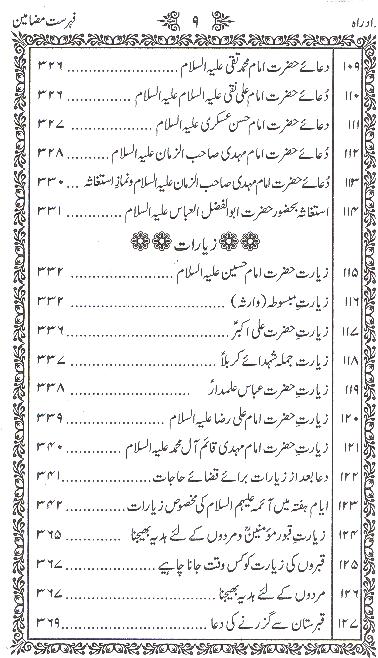 زادراہ ۹ فہرست مضامین
۱۰۹ دعائے حضرت امام محمد تقی علیہ السلام ۳۲۶
۱۱۰ دُعائے حضرت امام علی نقی علیہ السلام علیہ السلام ۳۲۶
۱۱۱ دُعائے حضرت امام حسن عسکری علیہ السلام ۳۲۷
۱۱۲ دُعائے حضرت امام مہدی صاحب الزمان علیہ السلام ۳۲۸
۱۱۳ دُعائے حضرت امام مہدی صاحب الزمان علیہ السلام و نمازِ استغاثہ ۳۳۰
۱۱۴ استغاثہ بحضور حضرت ابوالفضل العباس علیہ السلام ۳۳۱
زیارات
۱۱۵ زیارت حضرت امام حسین علیہ السلام ۳۳۲
۱۱۶ زیارتِ مبسوطہ (وارثہ) ۳۳۲
۱۱۷ زیارتِ حضرت علی اکبرؑ ۳۳۶
۱۱۸ زیارت جملہ شہدائے کربلاؑ ۳۳۷
۱۱۹ زیارتِ حضرت عباس علمدارؑ ۳۳۸
۱۲۰ زیارتِ حضرت امام علی رضا علیہ السلام ۳۳۹
۱۲۱ زیارتِ حضرت امام مہدی قائم آل محمد علیہ السلام ۳۴۰
۱۲۲ دعا بعد از زیارات برائے قضائے حاجات ۳۴۱
۱۲۳ ایام ہفتہ میں آئمہ علیہم السلام کی مخصوص زیارات ۳۴۲
۱۲۴ زیارتِ قبور مؤمنینؓ و مردوں کے لئے ہدیہ بھیجنا ۳۶۵
۱۲۵ قبروں کی زیارت کو کس وقت جانا چاہیے ۳۶۷
۱۲۶ مردوں کے لئے ہدیہ بھیجنا ۳۶۷
۱۲۷ قبرستان سے گزرنے کی دعا ۳۶۹